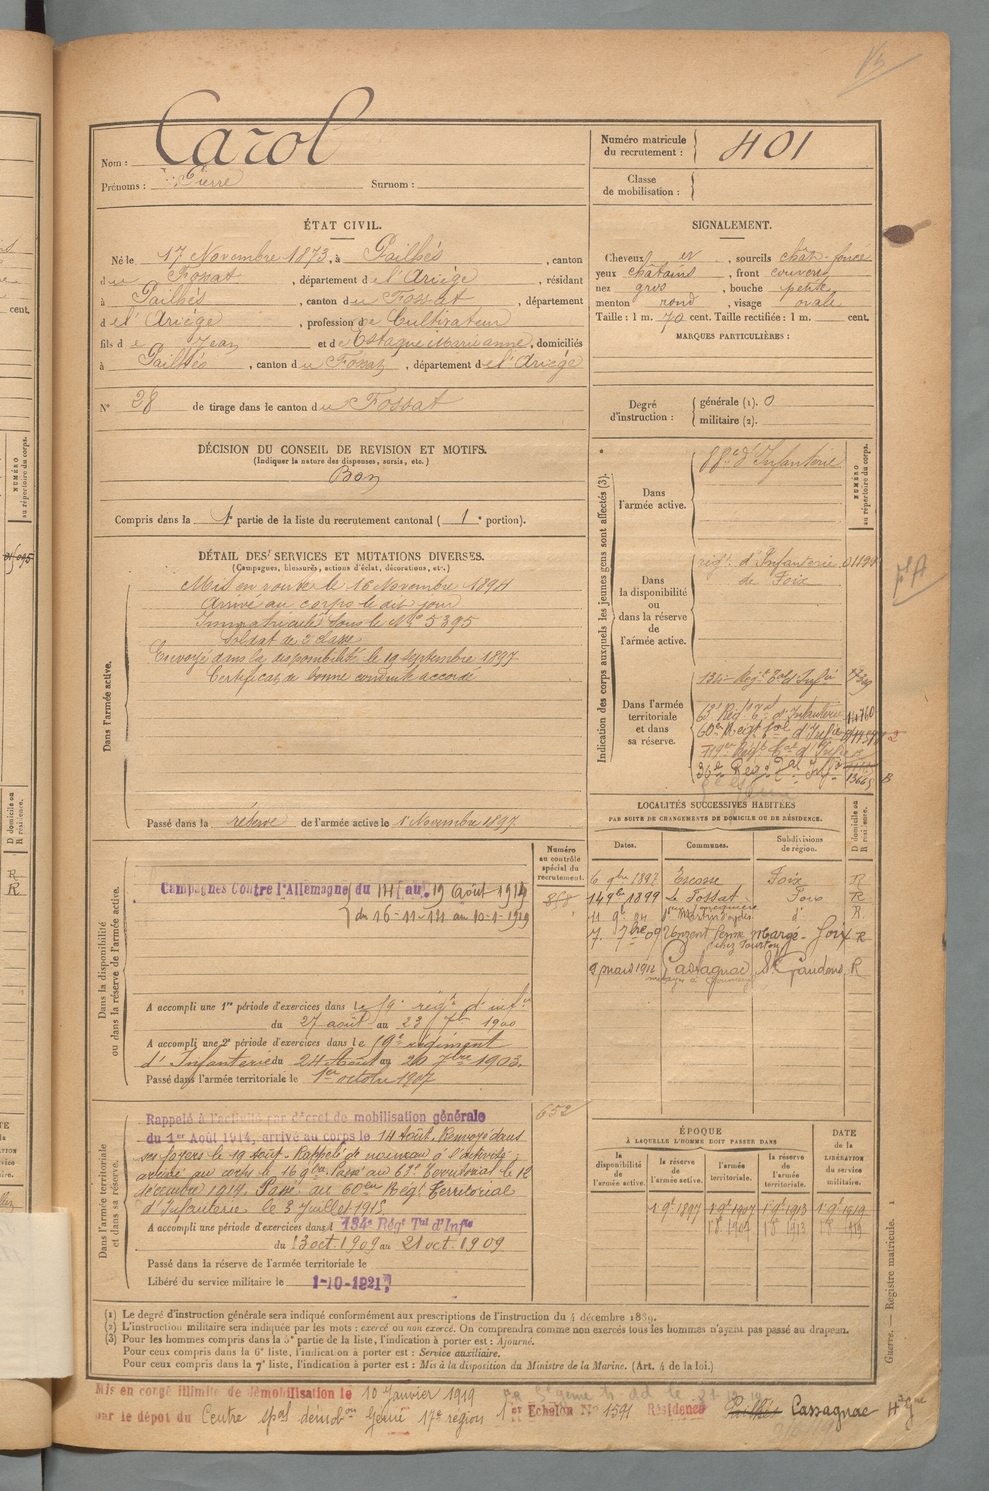 Nom : Carol
Prénoms : Pierre Surnom :
Numéro matricule du recrutement : 401
Classe de mobilisation :
ÉTAT CIVIL.
Né le 17 Novembre 1873, à Pailhés, canton
du Fossat, département de l'Ariége, résidant
à Pailhés, canton du Fossat, département
de l'Ariége, profession de Cultivateur
fils de Jean et de Estaque Marie anne, domiciliés
à Pailhés, canton du Fossat, département de l'Ariége
N° 28 de tirage dans le canton du Fossat
SIGNALEMENT.
Cheveux et, sourcils chât-foncé
yeux châtains, front couvert
nez gros, bouche petite
menton rond, visage ovale
Taille : 1 m. 70 cent. Taille rectifiée : 1 m. cent.
MARQUES PARTICULIÈRES :
Degré d'instruction : générale (1). 0
militaire (2).
DÉCISION DU CONSEIL DE REVISION ET MOTIFS.
(Indiquer la nature des dispenses, sursis, etc.)
Bon
Compris dans la 1e partie de la liste du recrutement cantonal ( 1e portion).
DÉTAIL DES SERVICES ET MUTATIONS DIVERSES.
(Campagnes, blessures, actions d'éclat, décorations, etc.)
Dans l'armée active.
Mis en route le 16 Novembre 1894
Arrivé au corps le dit jour
Immatriculé sous le N° 5395
Soldat de 2 classe
Envoyé dans la disponibilité le 19 septembre 1897
Certificat de bonne conduite accordé
Passé dans la réserve de l'armée active le 1 Novembre 1897
Indication des corps auxquels les jeunes gens sont affectés (3).
NUMÉRO au répertoire du corps.
Dans l'armée active.
d'Infanterie
Dans la disponibilité ou dans la réserve de l'armée active.
régt d'Infanterie
de Foix
Dans l'armée territoriale et dans sa réserve.
134e Regt Tal d'Infie
63e Régt Tal d'Infanterie
60e Regt Tal d'Infie
LOCALITÉS SUCCESSIVES HABITÉES
PAR SUITE DE CHANGEMENTS DE DOMICILE OU DE RÉSIDENCE.
Dates. Communes. Subdivisions de région. D domicile ou R résidence.
6 9bre 1897 Escosse Foix R
14 9bre 1899 Le Fossat Foix R
7 7bre 09 Foix R
9 mars 1912 Cassagnac St Gaudens R
Dans la disponibilité ou dans la réserve de l'armée active.
Numéro au contrôle spécial du recrutement.
Campagnes Contre l'Allemagne du au 19 Août 1914
du 16-11-14 au 10-1-1919
A accompli une 1re période d'exercices dans le régt d'infie
du 27 août au 23 7bre 1900
A accompli une 2e période d'exercices dans le régiment
d'Infanterie du 24 Août au 20 7bre 1903.
Passé dans l'armée territoriale le 1er octobre 1907
Dans l'armée territoriale et dans sa réserve.
652
Rappelé à l'activité par décret de mobilisation générale
du 1er Août 1914, arrivé au corps le 14 Août. Renvoyé dans
ses foyers le 19 Août. Rappelé de nouveau à l'activité,
arrivé au corps le 16 9bre. Passé au 63e Territorial le 12
décembre 1914. Passé au 60eme Régt Territorial
d'Infanterie le 3 Juillet 1915.
A accompli une période d'exercices dans l 134e Régt Tal d'Infie
du 13 oct 1909 au 21 oct. 1909
Passé dans la réserve de l'armée territoriale le
Libéré du service militaire le 1-10-1921
ÉPOQUE
À LAQUELLE L'HOMME DOIT PASSER DANS
DATE de la LIBÉRATION du service militaire.
la disponibilité de l'armée active. la réserve de l'armée active. l'armée territoriale. la réserve de l'armée territoriale.
1 9e 1897 1 9e 1907 1 9e 1913 1 9e 1919
Guerre. — Registre matricule. 1
(1) Le degré d'instruction générale sera indiqué conformément aux prescriptions de l'instruction du 4 décembre 1889.
(2) L'instruction militaire sera indiquée par les mots : exercé ou non exercé. On comprendra comme non exercés tous les hommes n'ayant pas passé au drapeau.
(3) Pour les hommes compris dans la 5e partie de la liste, l'indication à porter est : Ajourné.
Pour ceux compris dans la 6e liste, l'indication à porter est : Service auxiliaire.
Pour ceux compris dans la 7e liste, l'indication à porter est : Mis à la disposition du Ministre de la Marine. (Art. 4 de la loi.)
Mis en congé illimité de démobilisation le 10 Janvier 1919
par le dépôt du Centre spal démobon Génie 17e région 1er Echelon N° 1591 Résidence Pailhés Cassagnac Hte Gne